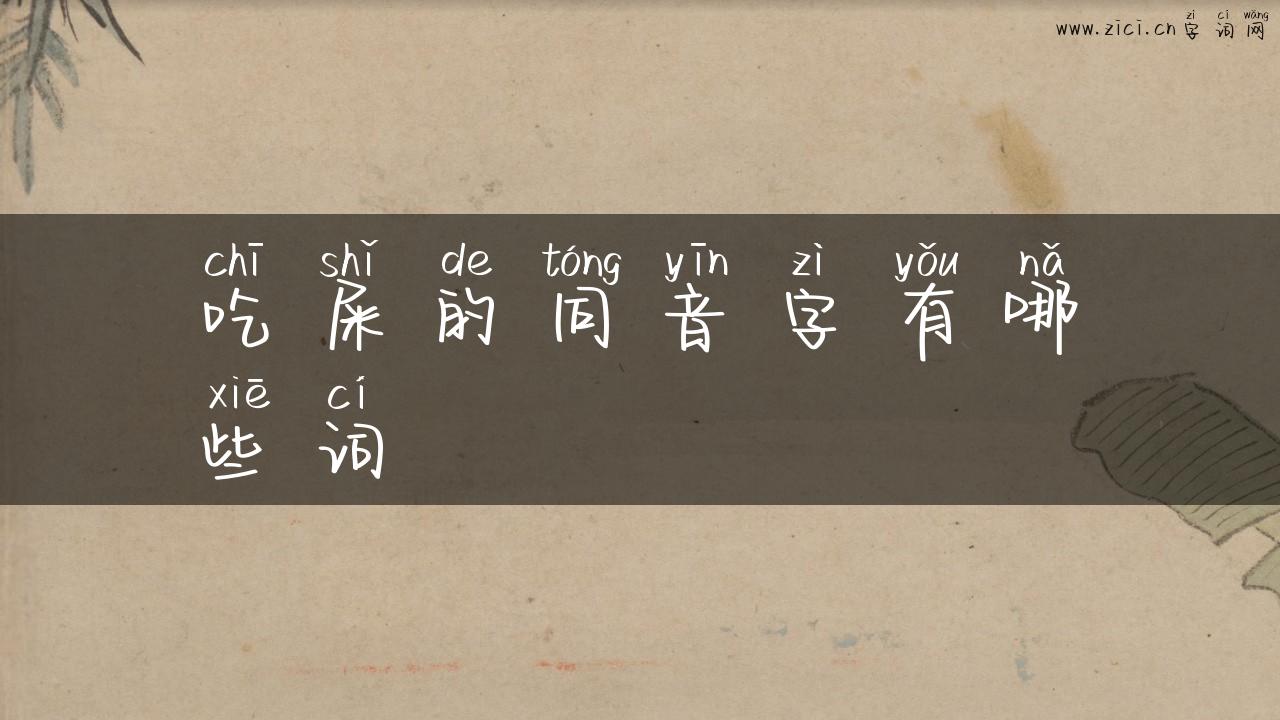 zì cí wǎng
www.zici.cn 字词网
chī shǐ de tóng yīn zì yǒu nǎ
吃屎的同音字有哪
xiē cí
些词